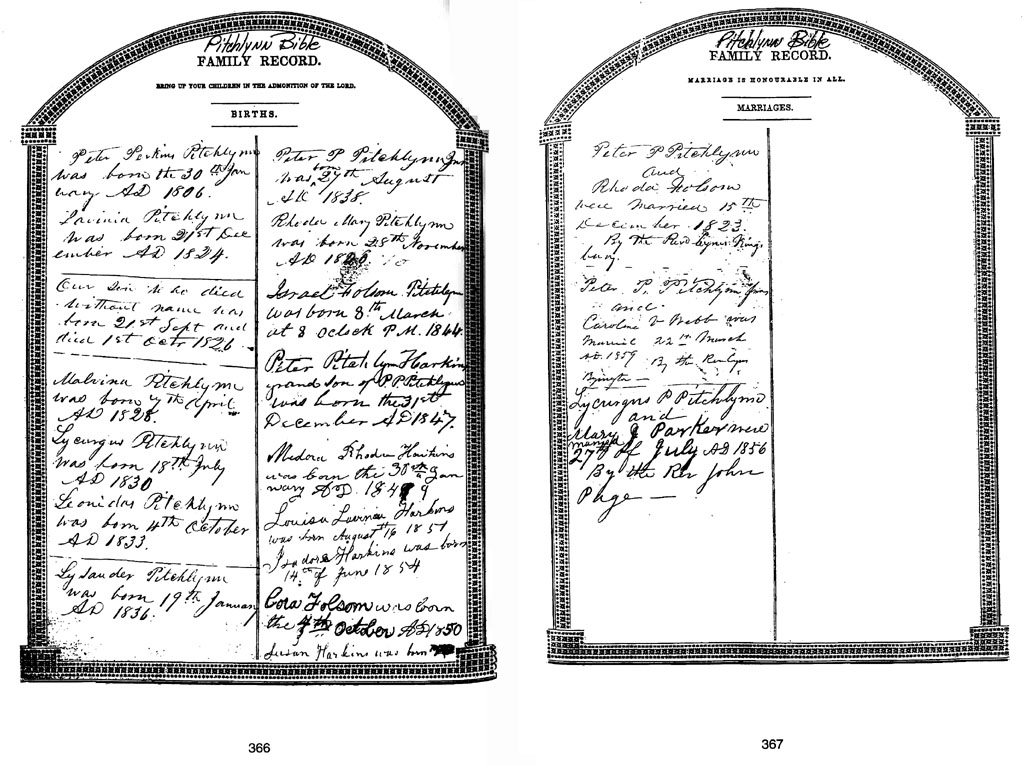 Pitchlynn Bible
FAMILY RECORD.
BRING UP YOUR CHILDREN IN THE ADMONITION OF THE LORD.
BIRTHS.
Peter Perkins Pitchlynn
was born the 30th Jan
uary AD 1806.
Lavinia Pitchlynn
was born 21st Dec
ember AD 1824.
Our Son who died
without name was
born 21st Sept and
died 1st Octr 1826
Malvina Pitchlynn
was born 7th April
AD 1828.
Lycurgus Pitchlynn
was born 18th July
AD 1830
Leonidas Pitchlynn
was born 4th October
AD 1833.
Lysander Pitchlynn
was born 19th January
AD 1836.
Peter P Pitchlynn Jun
was born 27th August
AD 1838.
Rhoda Mary Pitchlynn
was born 28th November
AD
Israel Folsom Pitchlynn
was born 8th March
at 8 oclock P.M. 1844.
Peter Pitchlynn Harkins
grand son of P P Pitchlynn
was born the 31st
December AD 1847.
Medora Rhoda Harkins
was born the 30th Jan
uary AD. 1849
Louisa Lavinia Harkins
was born August 16th 1851
Isadora Harkins was born
14th of June 1854
Cora Folsom was born
the 4th October AD 1850
Susan Harkins was born
366
Pitchlynn Bible
FAMILY RECORD.
MARRIAGE IS HONOURABLE IN ALL.
MARRIAGES.
Peter P Pitchlynn
and
Rhoda Folsom
were Married 15th
December 1823.
By the Revd Cyrus Kings
bury.
Peter P. Pitchlynn Jun
and
Caroline V was
Married 22nd March
AD. 1859 By the Rev Cyrus
Byington —
Lycurgus P Pitchlynn
and
Mary J Parker were
married
27th of July AD 1856
By the Rev John
Page —
367